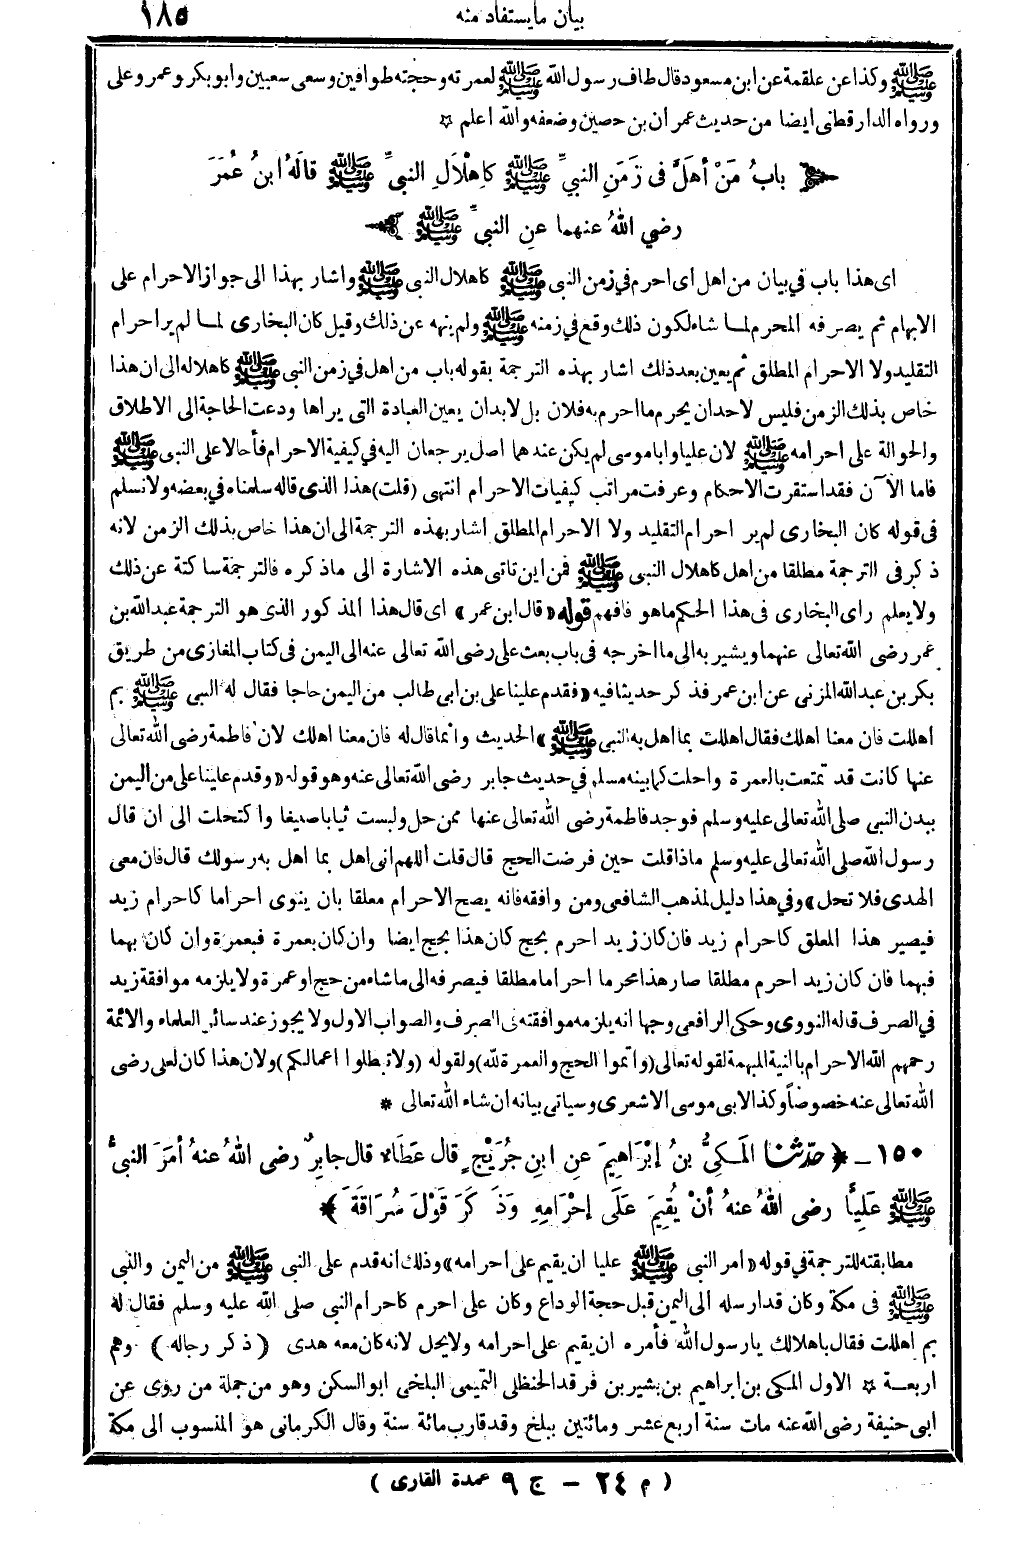 بيان ما يستفاد منه ١٨٥
ﷺ وكذا عن علقمة عن ابن مسعود قال طاف رسول الله ﷺ لعمرته وحجته طوافين وسعى سعيين وابو بكر وعمر وعلى
ورواه الدارقطنى ايضا من حديث عمران بن حصين وضعفه والله اعلم ☆
﴿ بابُ مَنْ أهَلَّ فى زَمَنِ النبيِّ ﷺ كإهْلَالِ النبيِّ ﷺ قالَهُ ابنُ عُمَرَ
رضي اللهُ عنهما عنِ النبيِّ ﷺ ﴾
اى هذا باب في بيان من اهل اى احرم في زمن النبى ﷺ كاهلال النبى ﷺ واشار بهذا الى جواز الاحرام على
الابهام ثم يصرفه المحرم لما شاء لكون ذلك وقع في زمنه ﷺ ولم ينهه عن ذلك وقيل كان البخارى لما لم ير احرام
التقليد ولا الاحرام المطلق ثم يعين بعد ذلك اشار بهذه الترجمة بقوله باب من اهل في زمن النبى ﷺ كاهلاله الى ان هذا
خاص بذلك الزمن فليس لاحد ان يحرم ما احرم به فلان بل لابد ان يعين العبادة التى يراها ودعت الحاجة الى الاطلاق
والحوالة على احرامه ﷺ لان عليا وابا موسى لم يكن عندهما اصل يرجعان اليه في كيفية الاحرام فأحالا على النبى ﷺ
فاما الآن فقد استقرت الاحكام وعرفت مراتب كيفيات الاحرام انتهى (قلت) هذا الذى قاله سلمناه في بعضه ولا نسلم
فى قوله كان البخارى لم ير احرام التقليد ولا الاحرام المطلق اشار بهذه الترجمة الى ان هذا خاص بذلك الزمن لانه
ذكر فى الترجمة مطلقا من اهل كاهلال النبى ﷺ فمن اين تاتى هذه الاشارة الى ما ذكره فالترجمة ساكتة عن ذلك
ولا يعلم راى البخارى فى هذا الحكم ما هو فافهم قوله «قال ابن عمر» اى قال هذا المذكور الذى هو الترجمة عبد الله بن
عمر رضى الله تعالى عنهما ويشير به الى ما اخرجه فى باب بعث على رضى الله تعالى عنه الى اليمن فى كتاب المغازى من طريق
بكر بن عبد الله المزنى عن ابن عمر فذكر حديثا فيه «فقدم علينا على بن ابى طالب من اليمن حاجا فقال له النبى ﷺ بم
اهللت فان معنا اهلك فقال اهللت بما اهل به النبى ﷺ» الحديث وانما قال له فان معنا اهلك لان فاطمة رضى الله تعالى
عنها كانت قد تمتعت بالعمرة واحلت كما بينه مسلم في حديث جابر رضى الله تعالى عنه وهو قوله «وقدم علينا على من اليمن
ببدن النبى صلى الله تعالى عليه وسلم فوجد فاطمة رضى الله تعالى عنها ممن حل ولبست ثيابا صبيغا واكتحلت الى ان قال
رسول الله صلى الله تعالى عليه وسلم ماذا قلت حين فرضت الحج قال قلت اللهم انى اهل بما اهل به رسولك قال فان معى
الهدى فلا تحل» وفي هذا دليل لمذهب الشافعى ومن وافقه فانه يصح الاحرام معلقا بان ينوى احراما كاحرام زيد
فيصير هذا المعلق كاحرام زيد فان كان زيد احرم بحج كان هذا بحج ايضا وان كان بعمرة فبعمرة وان كان بهما
فبهما فان كان زيد احرم مطلقا صار هذا محرما احراما مطلقا فيصرفه الى ما شاء من حج او عمرة ولا يلزمه موافقة زيد
في الصرف قاله النووى وحكى الرافعى وجها انه يلزمه موافقته فى الصرف والصواب الاول ولا يجوز عند سائر العلماء والائمة
رحمهم الله الاحرام بالنية المبهمة لقوله تعالى (واتموا الحج والعمرة لله) ولقوله (ولا تبطلوا اعمالكم) ولان هذا كان لعلى رضى
الله تعالى عنه خصوصاً وكذا لابى موسى الاشعرى وسياتى بيانه ان شاء الله تعالى *
١٥٠ ـ ﴿ حدّثنا المَكِيُّ بنُ إبْرَاهِيمَ عنِ ابنِ جُرَيْجٍ قال عَطَاءٌ قال جابِرٌ رضى اللهُ عنهُ أمَرَ النبىُّ
ﷺ عَلِيًّا رضى اللهُ عنهُ أنْ يُقِيمَ عَلَى إحْرَامِهِ وَذَكَرَ قَوْلَ سُرَاقَةَ ﴾
مطابقته للترجمة في قوله «امر النبى ﷺ عليا ان يقيم على احرامه» وذلك انه قدم على النبى ﷺ من اليمن والنبى
ﷺ فى مكة وكان قد ارسله الى اليمن قبل حجة الوداع وكان على احرم كاحرام النبى صلى الله عليه وسلم فقال له
بم اهللت فقال باهلالك يا رسول الله فأمره ان يقيم على احرامه ولا يحل لانه كان معه هدى (ذكر رجاله) وهم
اربعة ☆ الاول المكى بن ابراهيم بن بشير بن فرقد الحنظلى التميمى البلخى ابو السكن وهو من جملة من روى عن
ابى حنيفة رضى الله عنه مات سنة اربع عشر ومائتين ببلخ وقد قارب مائة سنة وقال الكرمانى هو المنسوب الى مكة
( م ٢٤ – ج ٩ عمدة القارى )